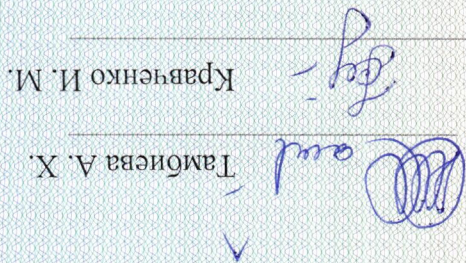 Тамбиева А. Х.
Кравченко И. М.